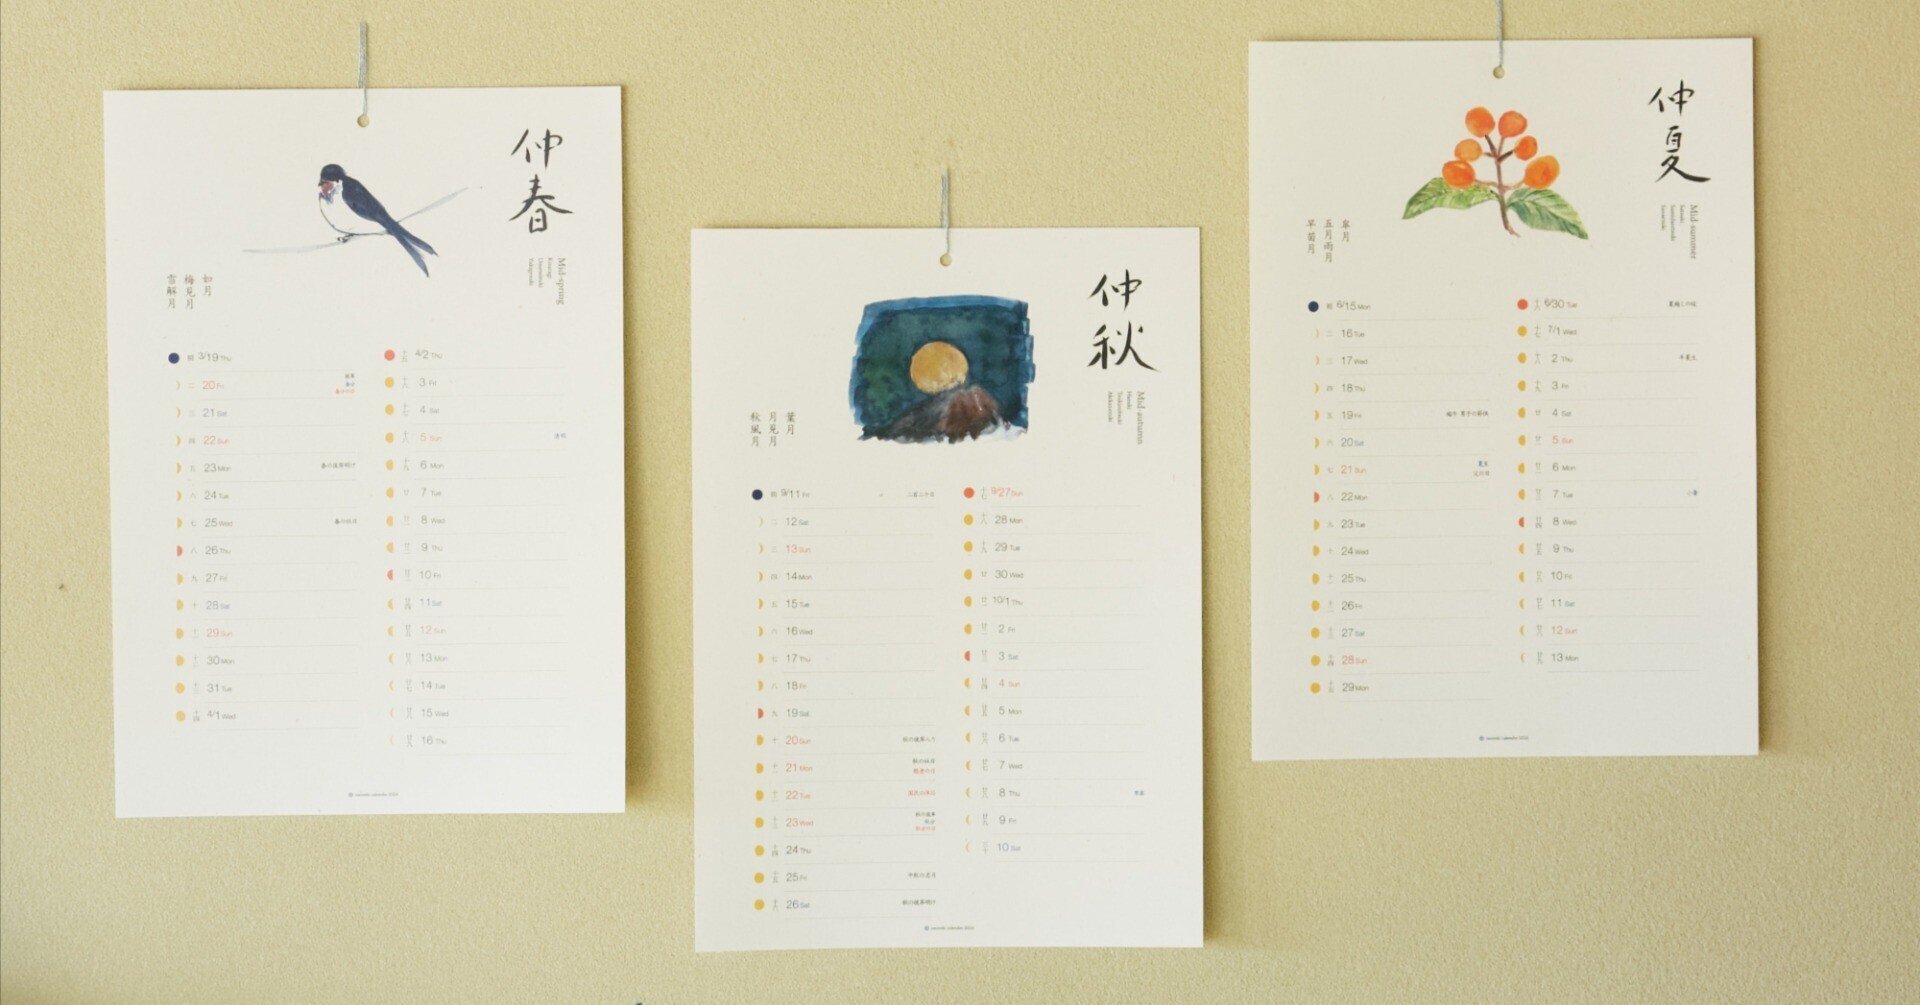 仲春
Mid-spring
Kisaragi
Umemizuki
Yukigezuki
如月
梅見月
雪解月
朔 3/19 Thu
二 20 Fri 春分 春分の日
三 21 Sat
四 22 Sun
五 23 Mon 春の彼岸明け
六 24 Tue
七 25 Wed 春の社日
八 26 Thu
九 27 Fri
十 28 Sat
十一 29 Sun
十二 30 Mon
十三 31 Tue
十四 4/1 Wed
十五 4/2 Thu
十六 3 Fri
十七 4 Sat
十八 5 Sun 清明
十九 6 Mon
廿 7 Tue
廿一 8 Wed
廿二 9 Thu
廿三 10 Fri
廿四 11 Sat
廿五 12 Sun
廿六 13 Mon
廿七 14 Tue
廿八 15 Wed
廿九 16 Thu
仲秋
Mid-autumn
Hazuki
Tsukimizuki
Akikazezuki
葉月
月見月
秋風月
朔 9/11 Fri 二百二十日
二 12 Sat
三 13 Sun
四 14 Mon
五 15 Tue
六 16 Wed
七 17 Thu
八 18 Fri
九 19 Sat
十 20 Sun 秋の彼岸入り
十一 21 Mon 秋の社日 敬老の日
十二 22 Tue 国民の休日
十三 23 Wed 秋分 秋分の日
十四 24 Thu
十五 25 Fri 中秋の名月
十六 26 Sat 秋の彼岸明け
十七 9/27 Sun
十八 28 Mon
十九 29 Tue
廿 30 Wed
廿一 10/1 Thu
廿二 2 Fri
廿三 3 Sat
廿四 4 Sun
廿五 5 Mon
廿六 6 Tue
廿七 7 Wed
廿八 8 Thu 寒露
廿九 9 Fri
三十 10 Sat
仲夏
Mid-summer
Satsuki
Samidaretsuki
Sanaetsuki
皐月
五月雨月
早苗月
朔 6/15 Mon
二 16 Tue
三 17 Wed
四 18 Thu
五 19 Fri
六 20 Sat
七 21 Sun 夏至 父の日
八 22 Mon
九 23 Tue
十 24 Wed
十一 25 Thu
十二 26 Fri
十三 27 Sat
十四 28 Sun
十五 29 Mon
十六 6/30 Tue 夏越しの祓
十七 7/1 Wed
十八 2 Thu 半夏生
十九 3 Fri
廿 4 Sat
廿一 5 Sun
廿二 6 Mon
廿三 7 Tue 小暑
廿四 8 Wed
廿五 9 Thu
廿六 10 Fri
廿七 11 Sat
廿八 12 Sun
廿九 13 Mon